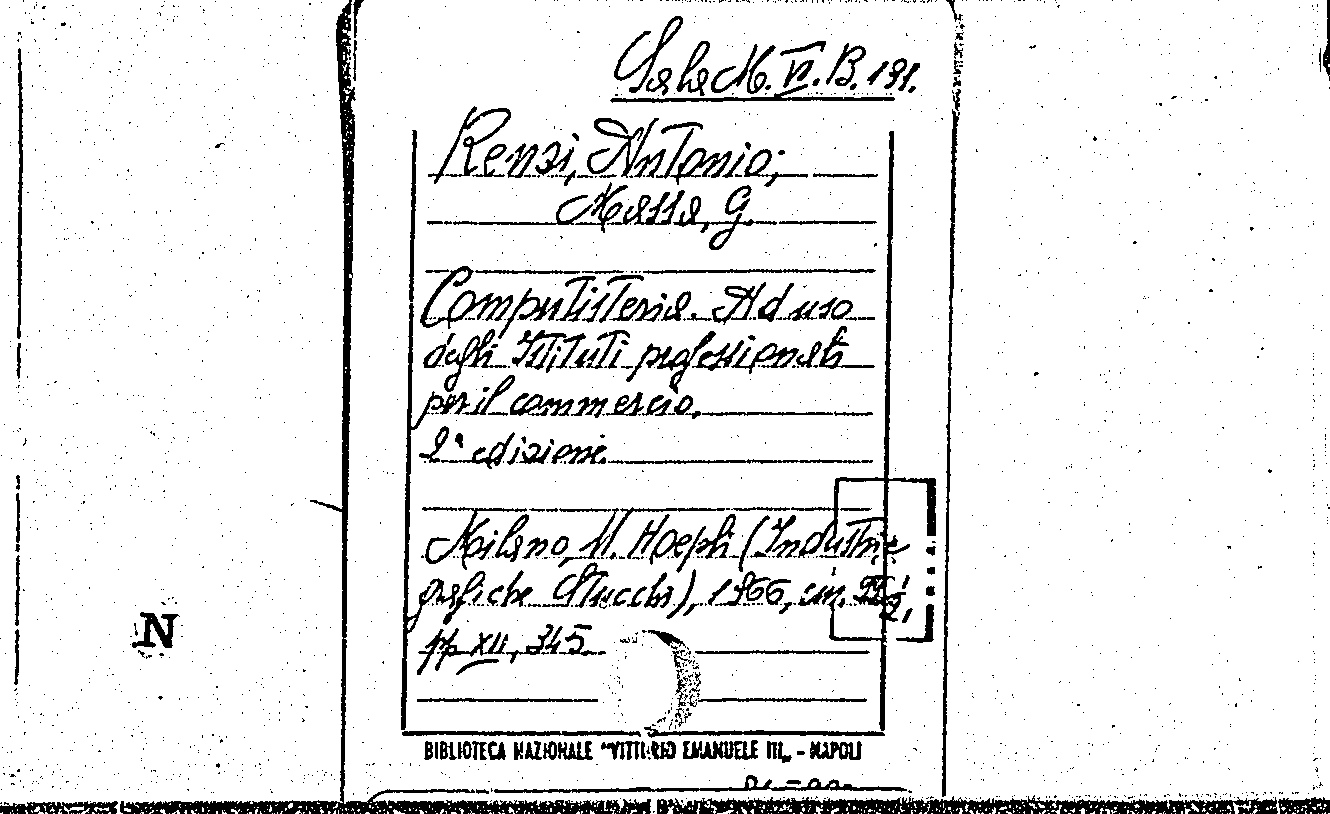 Sala M. VI. B. 191.
Renzi, Antonio;
Massa, G.
Computisteria. Ad uso
degli Istituti professionali
per il commercio.
2ª edizione.
Milano, U. Hoepli (Industrie
grafiche Stucchi), 1966, cm.
pp XII, 345.
N
BIBLIOTECA NAZIONALE "VITTORIO EMANUELE III„ - NAPOLI